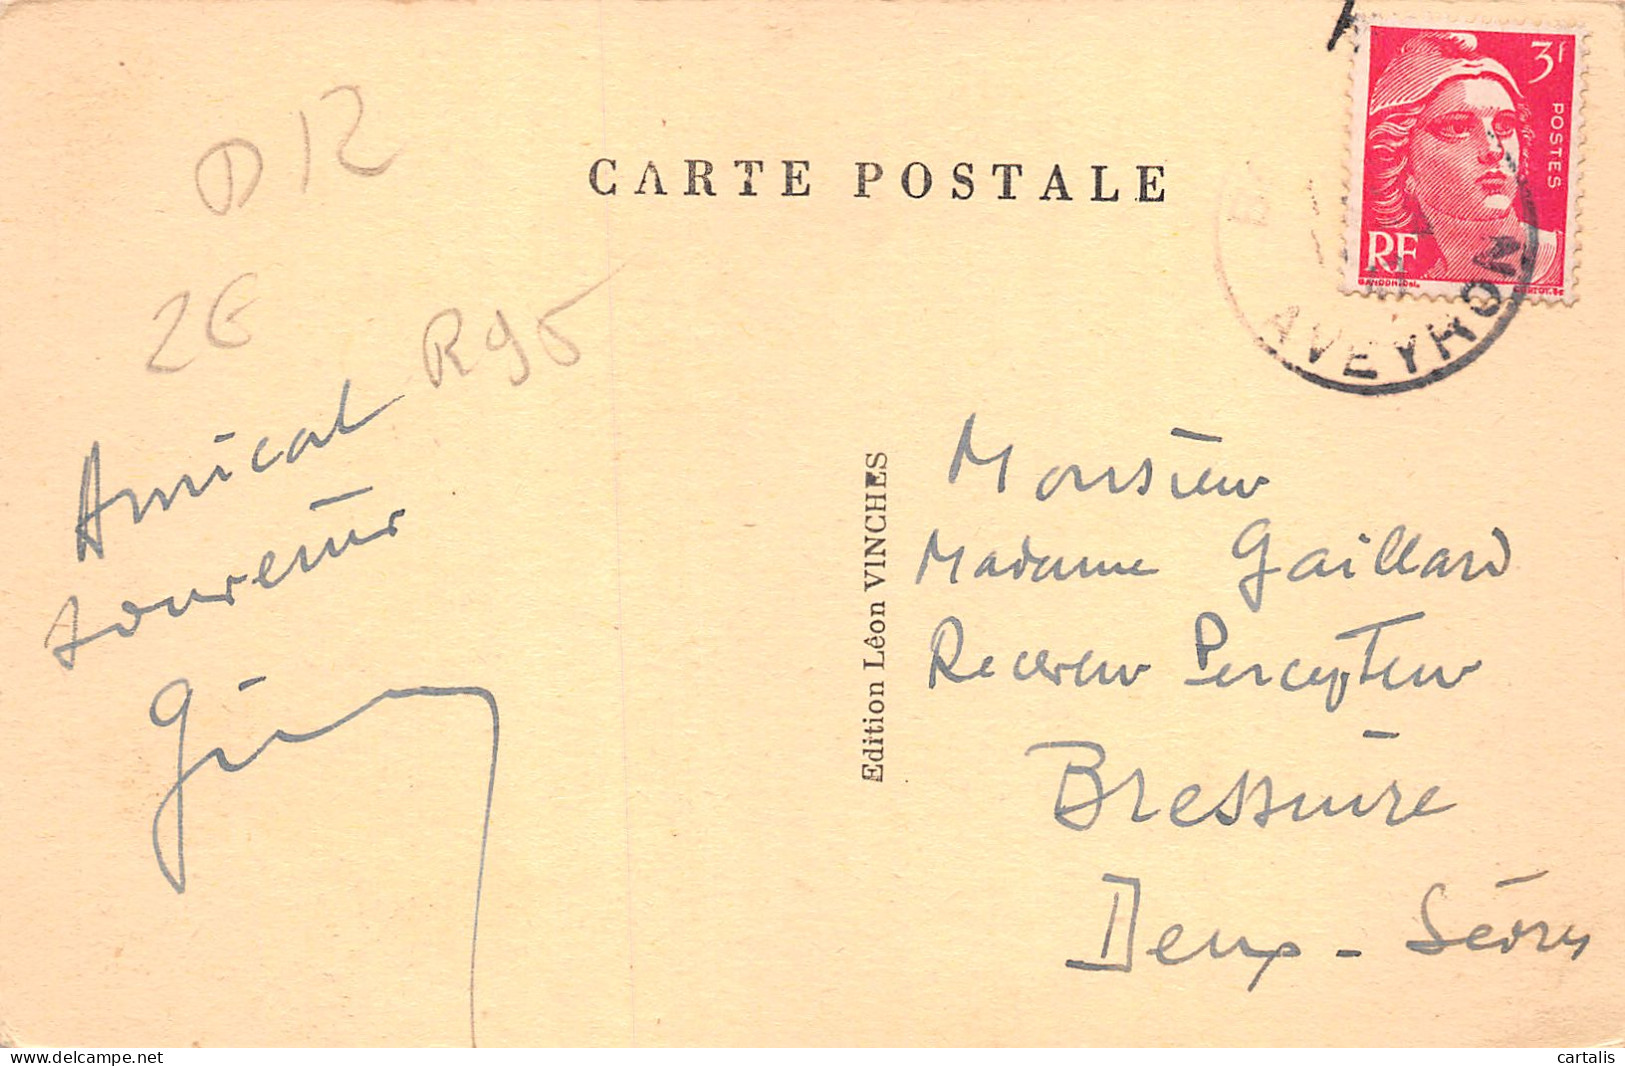 D12
CARTE POSTALE
3f
POSTES
RF
GANDON
AVEYRON
2E
R95
Amical
souvenir
Edition Léon VINCHES
Monsieur
Madame Gaillard
Receveur Percepteur
Bressuire
Deux-Sèvres
delcampe.net
cartalis